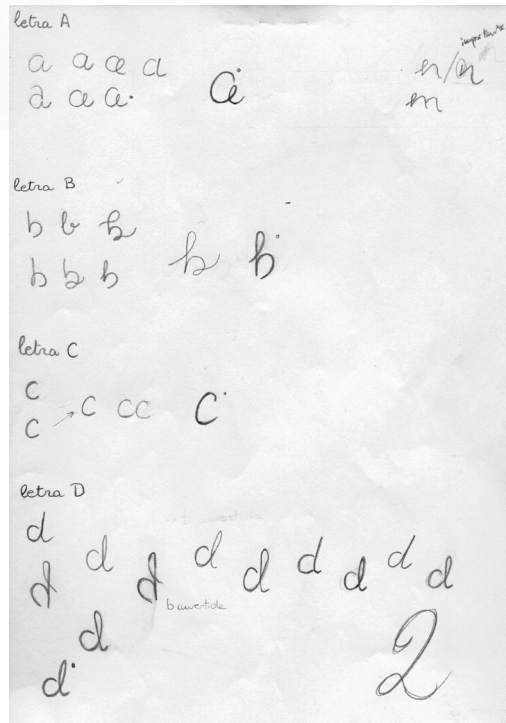 letra A
a a a a
a a a a
n/n
m
letra B
b b b
b b b b b
letra C
c
c c cc c
letra D
d
d d d d d d d d d
b invertido
d
d
2